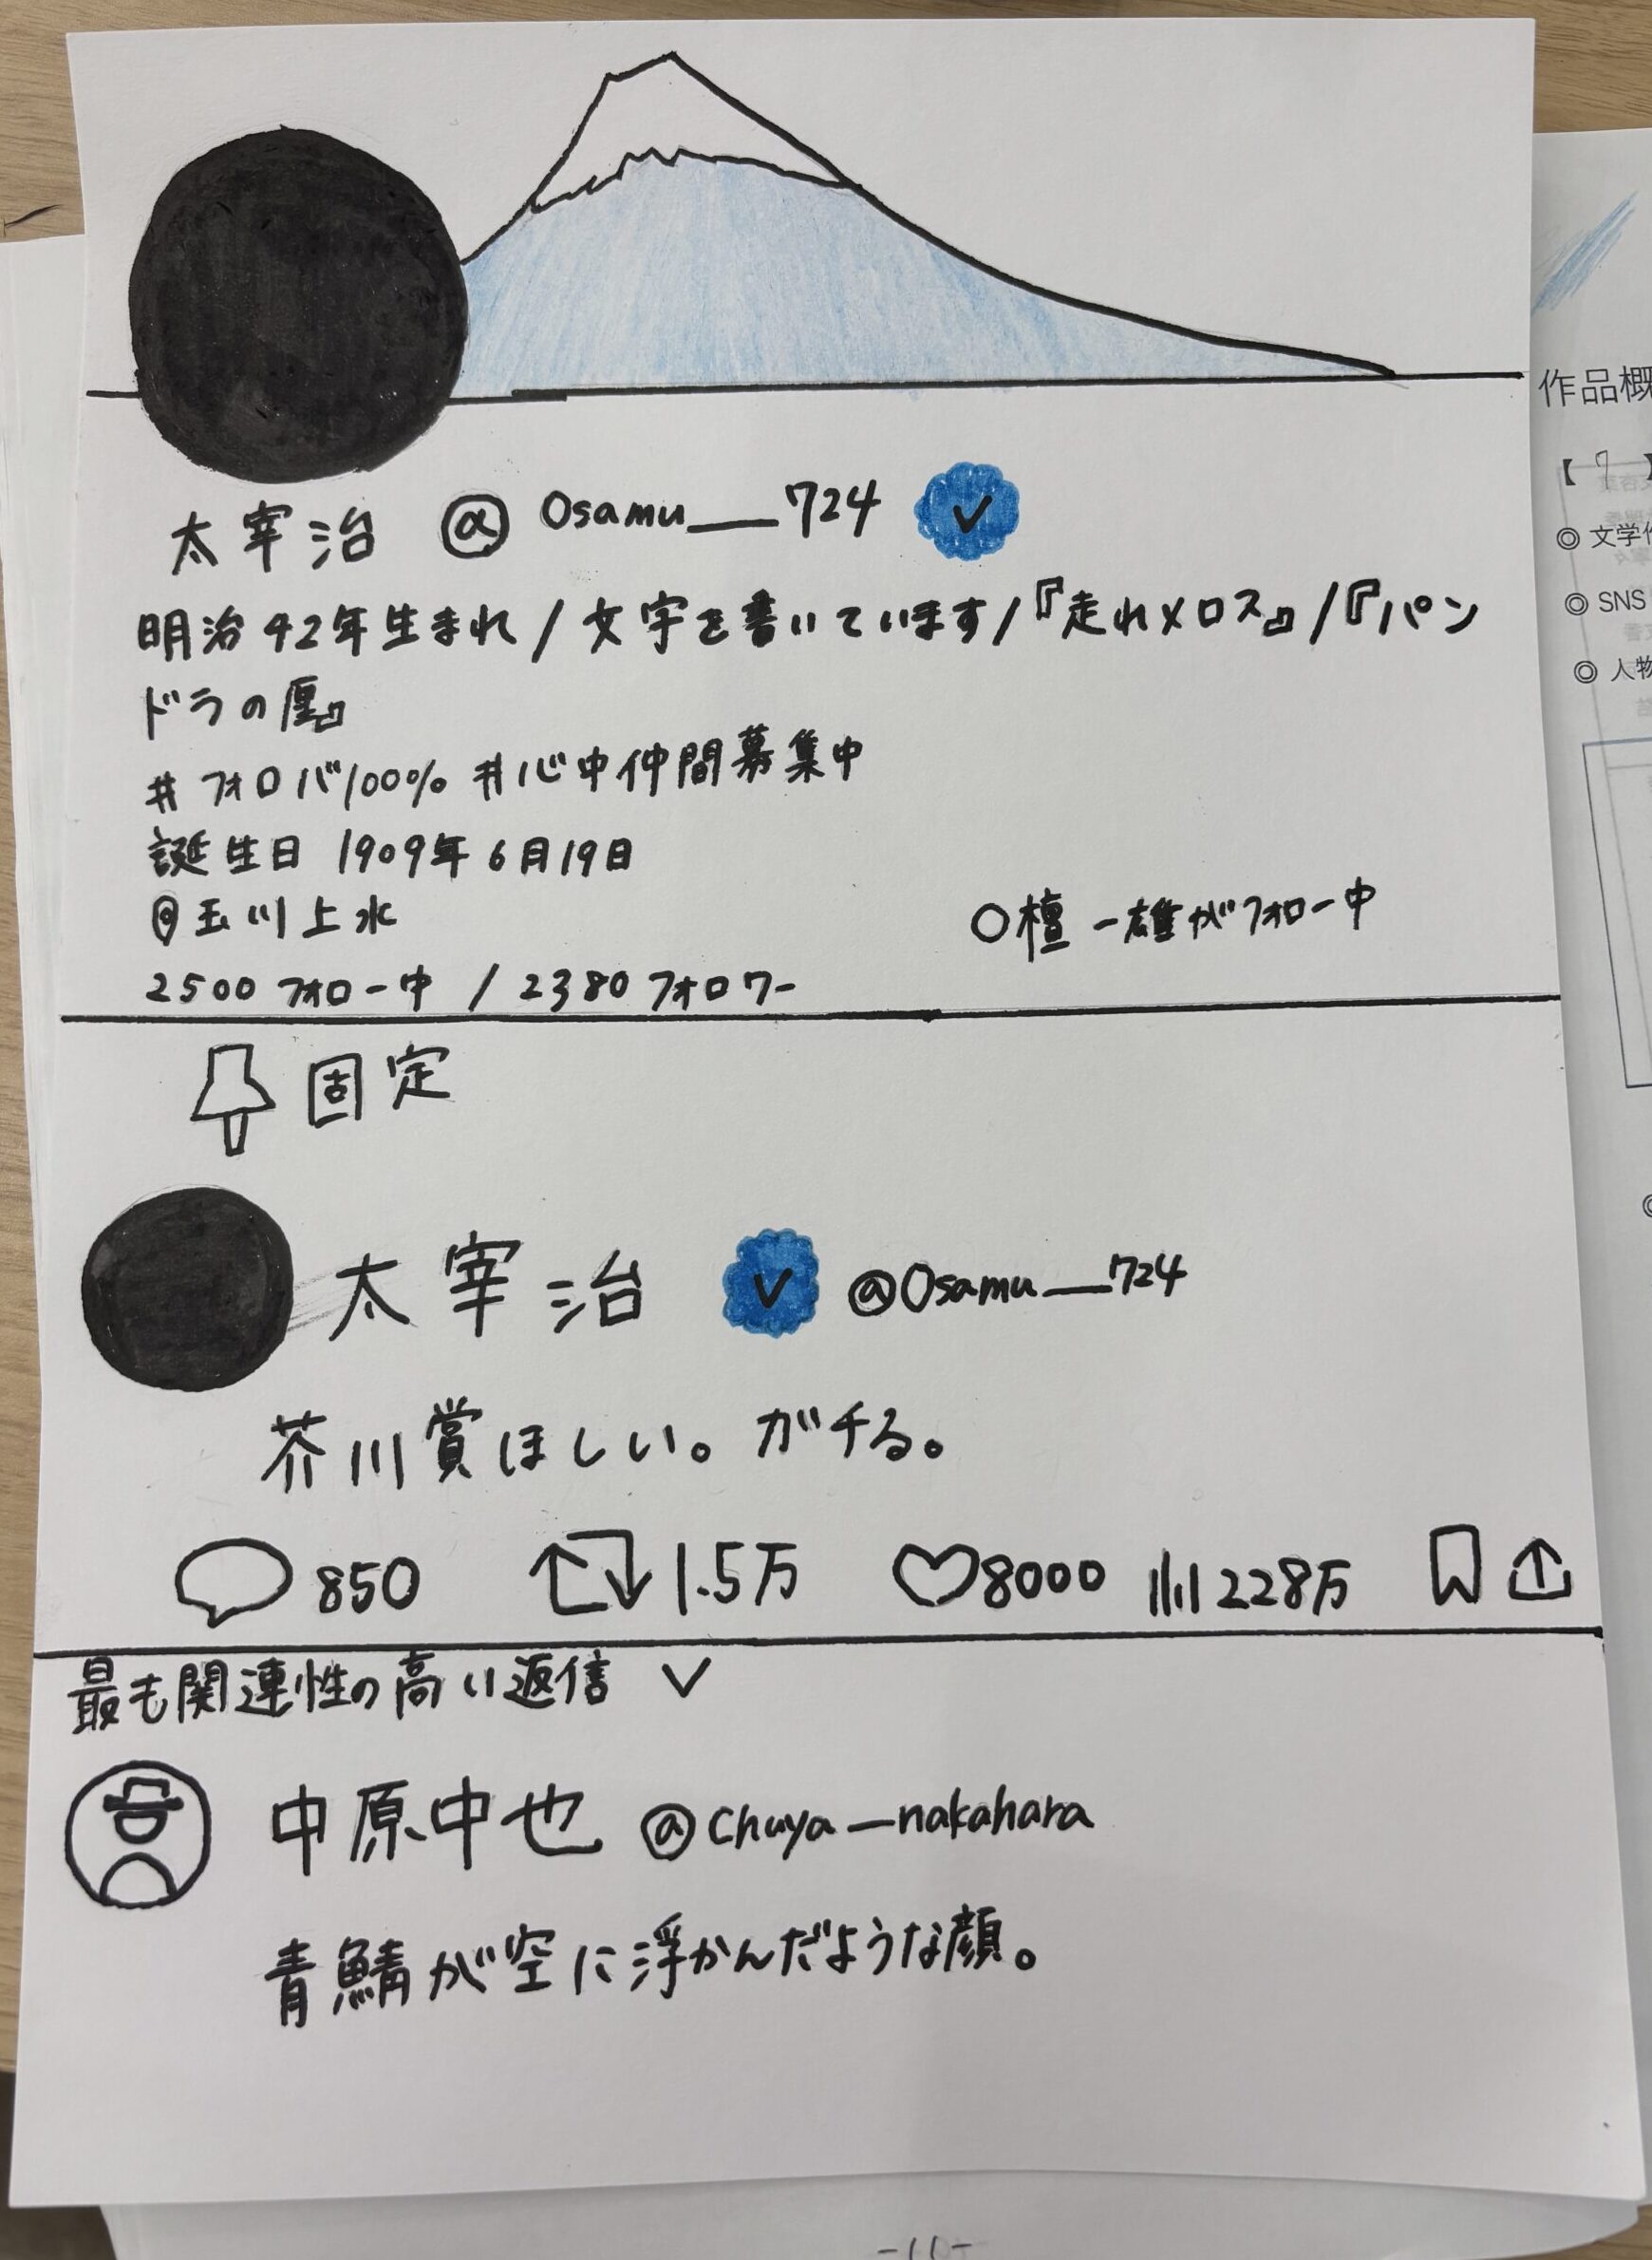 太宰治 @Osamu__724
明治42年生まれ/文字を書いています/『走れメロス』/『パン
ドラの匣』
#フォロバ100% #心中仲間募集中
誕生日 1909年6月19日
@玉川上水
○檀一雄がフォロー中
2500フォロー中 / 2380フォロワー
固定
太宰治 @Osamu__724
芥川賞ほしい。ガチる。
850 1.5万 8000 228万
最も関連性の高い返信
中原中也 @chuya_nakahara
青鯖が空に浮かんだような顔。
作品概
【 9 】
◎ 文学作
◎ SNS
◎ 人物
-11-